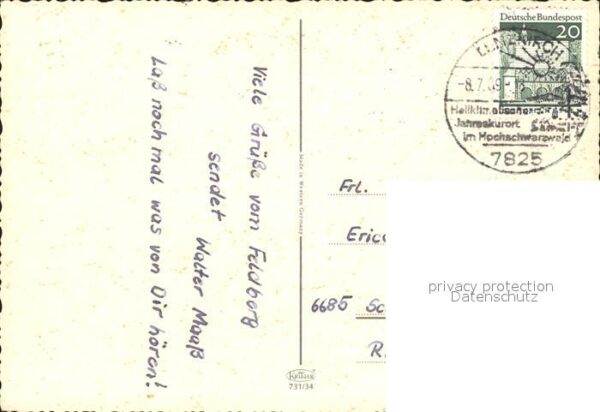 Viele Grüße vom Feldberg
sendet Walter Maaß
Laß noch mal was von Dir hören!
Made in Western Germany
Krüger
731/34
Deutsche Bundespost
20
-8.7.69-
Heilklimatischer
Jahreskurort
im Hochschwarzwald
7825
Frl.
Eric
6685 Sc
R.
privacy protection
Datenschutz